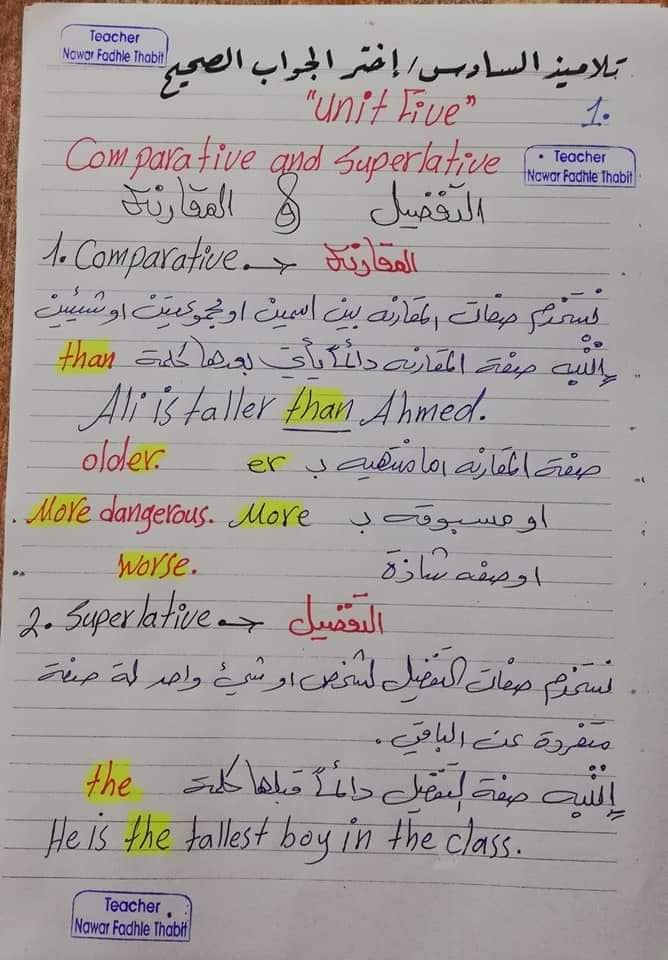 Teacher
Nawar Fadhle Thabit
تلاميذ السادس / إختر الجواب الصحيح
"Unit Five" 1.
Comparative and Superlative
Teacher
Nawar Fadhle Thabit
التفضيل & المقارنة
1. Comparative → المقارنة
نستخدم صفات المقارنه بين اسمين او مجموعتين او شيئين
إنتبه صفة المقارنه دائماً يأتي بعدها كلمة than
Ali is taller than Ahmed.
صفة المقارنه اما منتهيه بـ er older.
او مسبوقه بـ More More dangerous.
او صفه شاذة worse.
2. Superlative → التفضيل
نستخدم صفات التفضيل لشخص او شيء واحد له صفة
متفردة عن الباقي.
إنتبه صفة التفضيل دائماً قبلها كلمة the
He is the tallest boy in the class.
Teacher
Nawar Fadhle Thabit